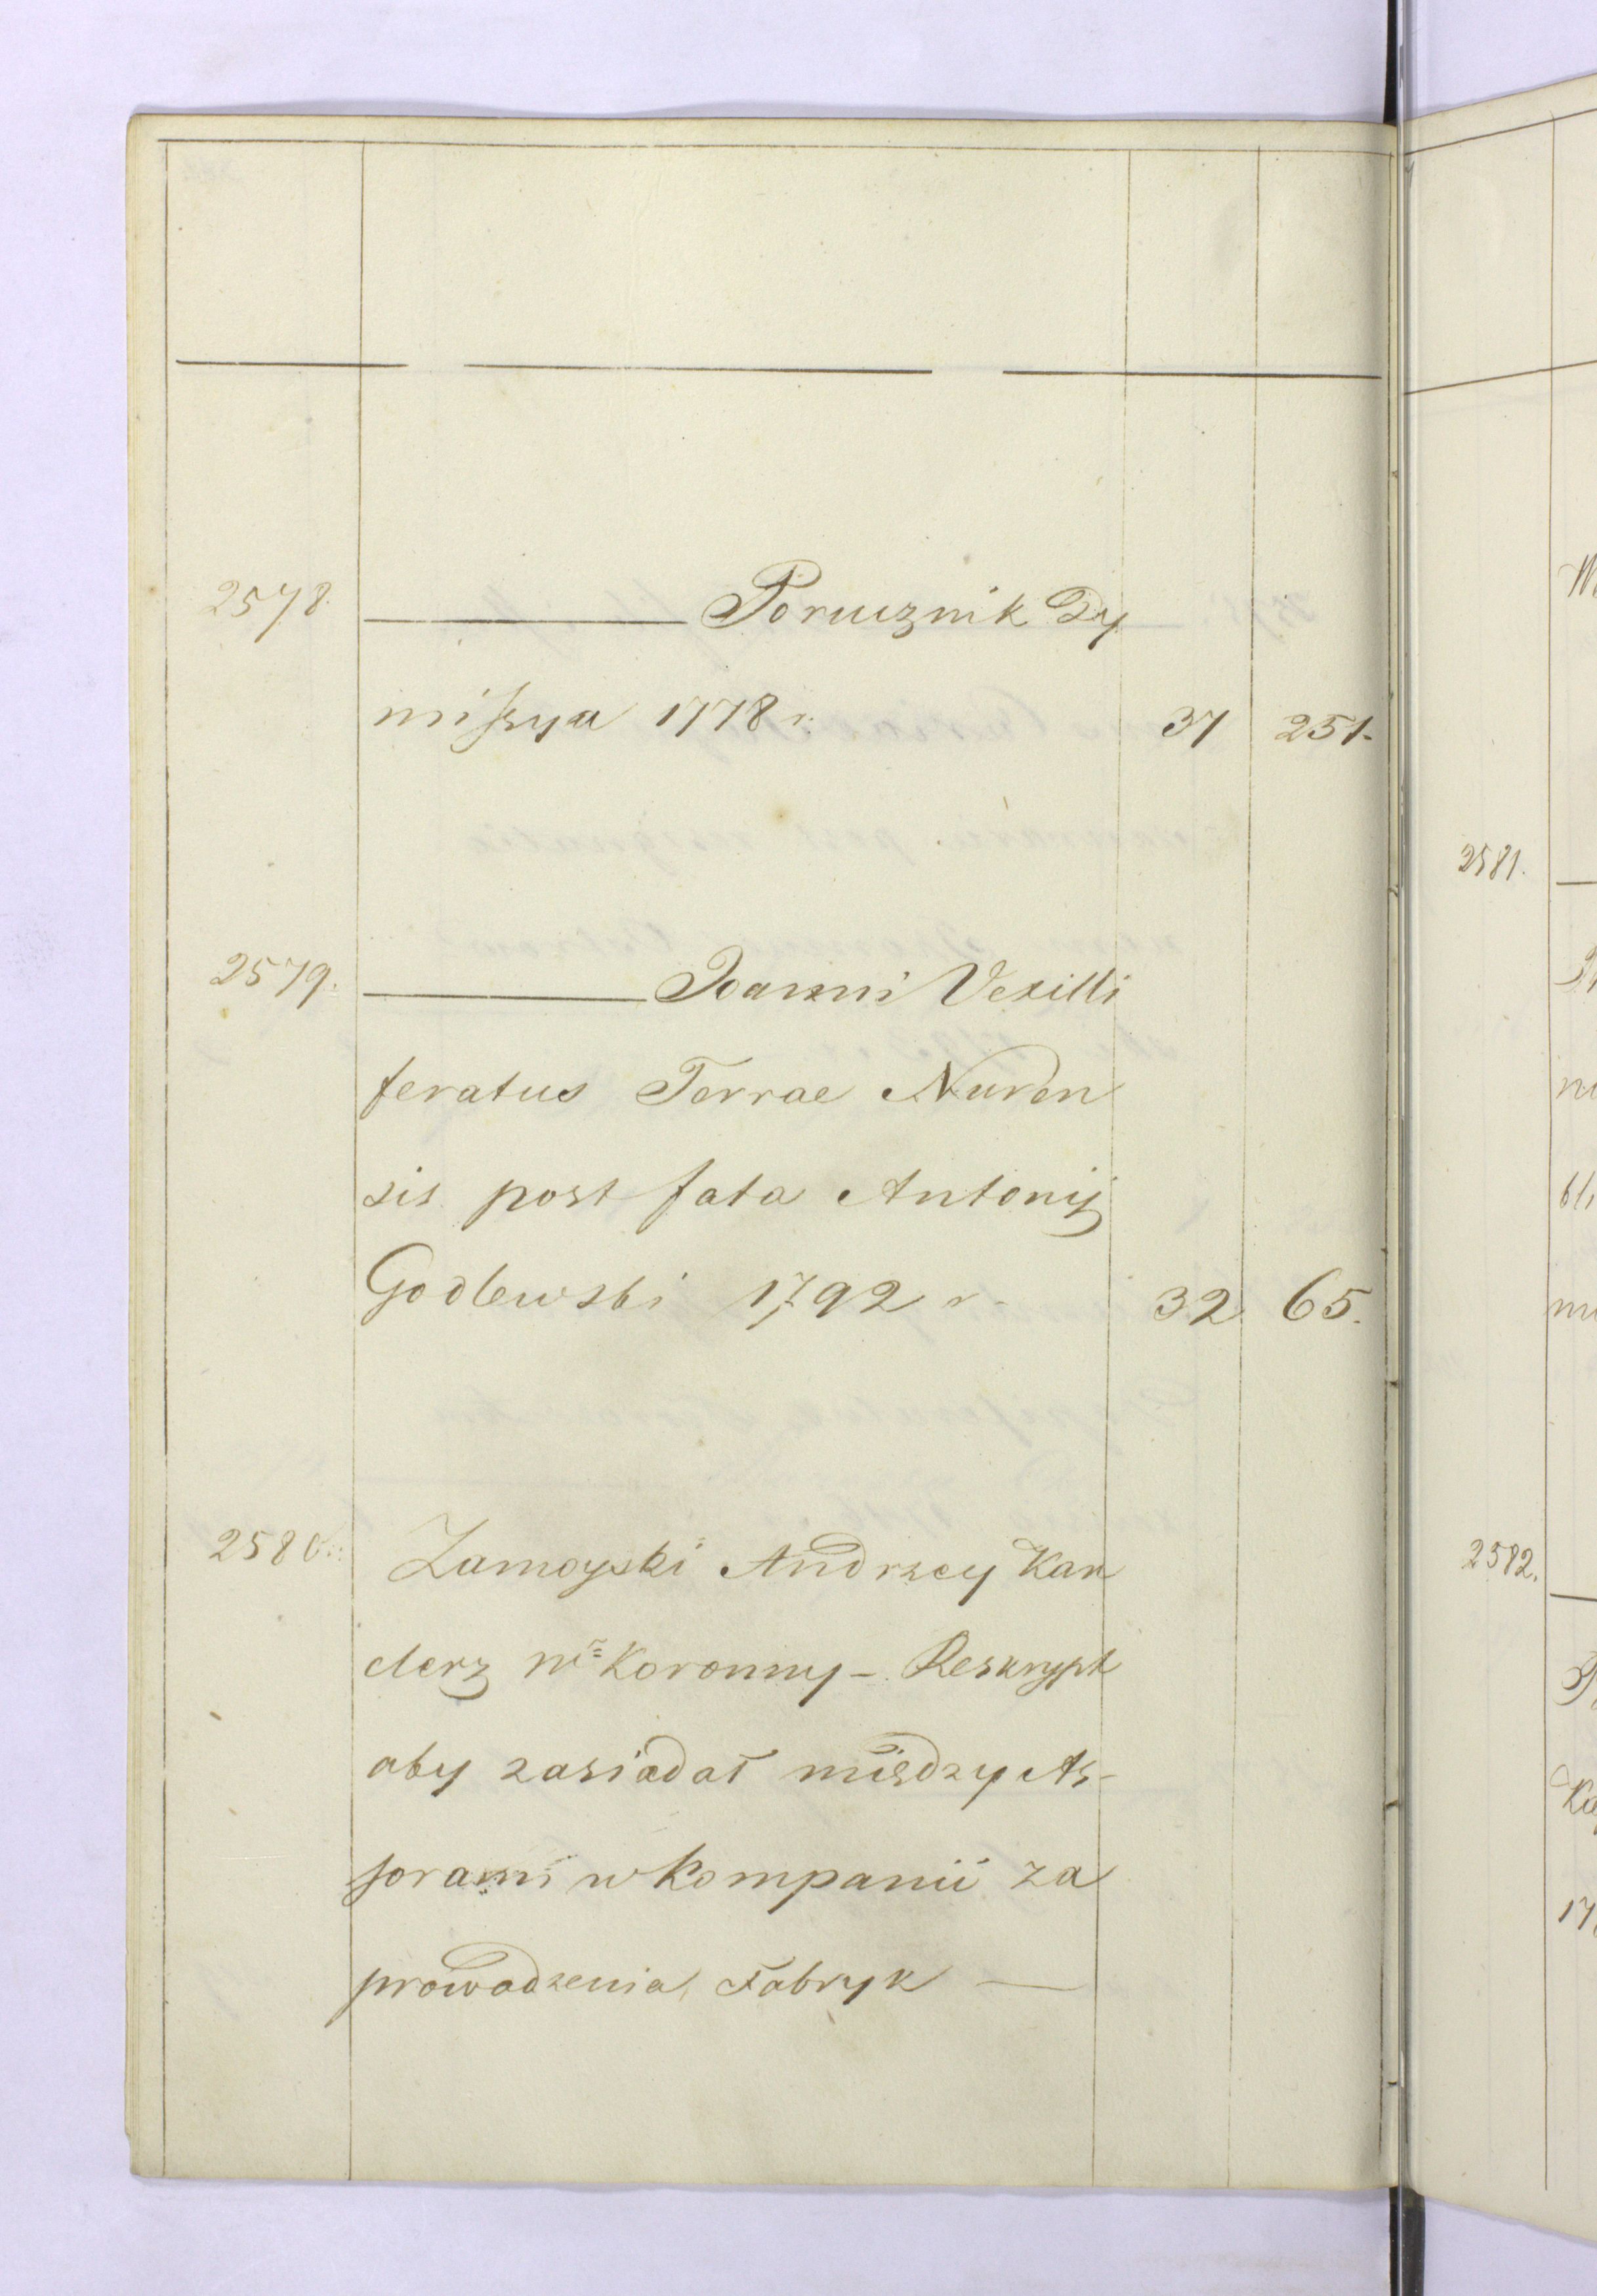 2578. ——— Porucznik Dy
missya 1778 r. 37 251.
2579. ——— Joanni Vexilli
feratus Terrae Nuren
sis post fata Antonij
Godlewski 1792 r. 32 65.
2580. Zamoyski Andrzey Kan
clerz W= Koronny – Reskrypt
aby zasiadał między As-
sorami w Kompanii za
prowadzenia Fabryk —
2581.
2582.